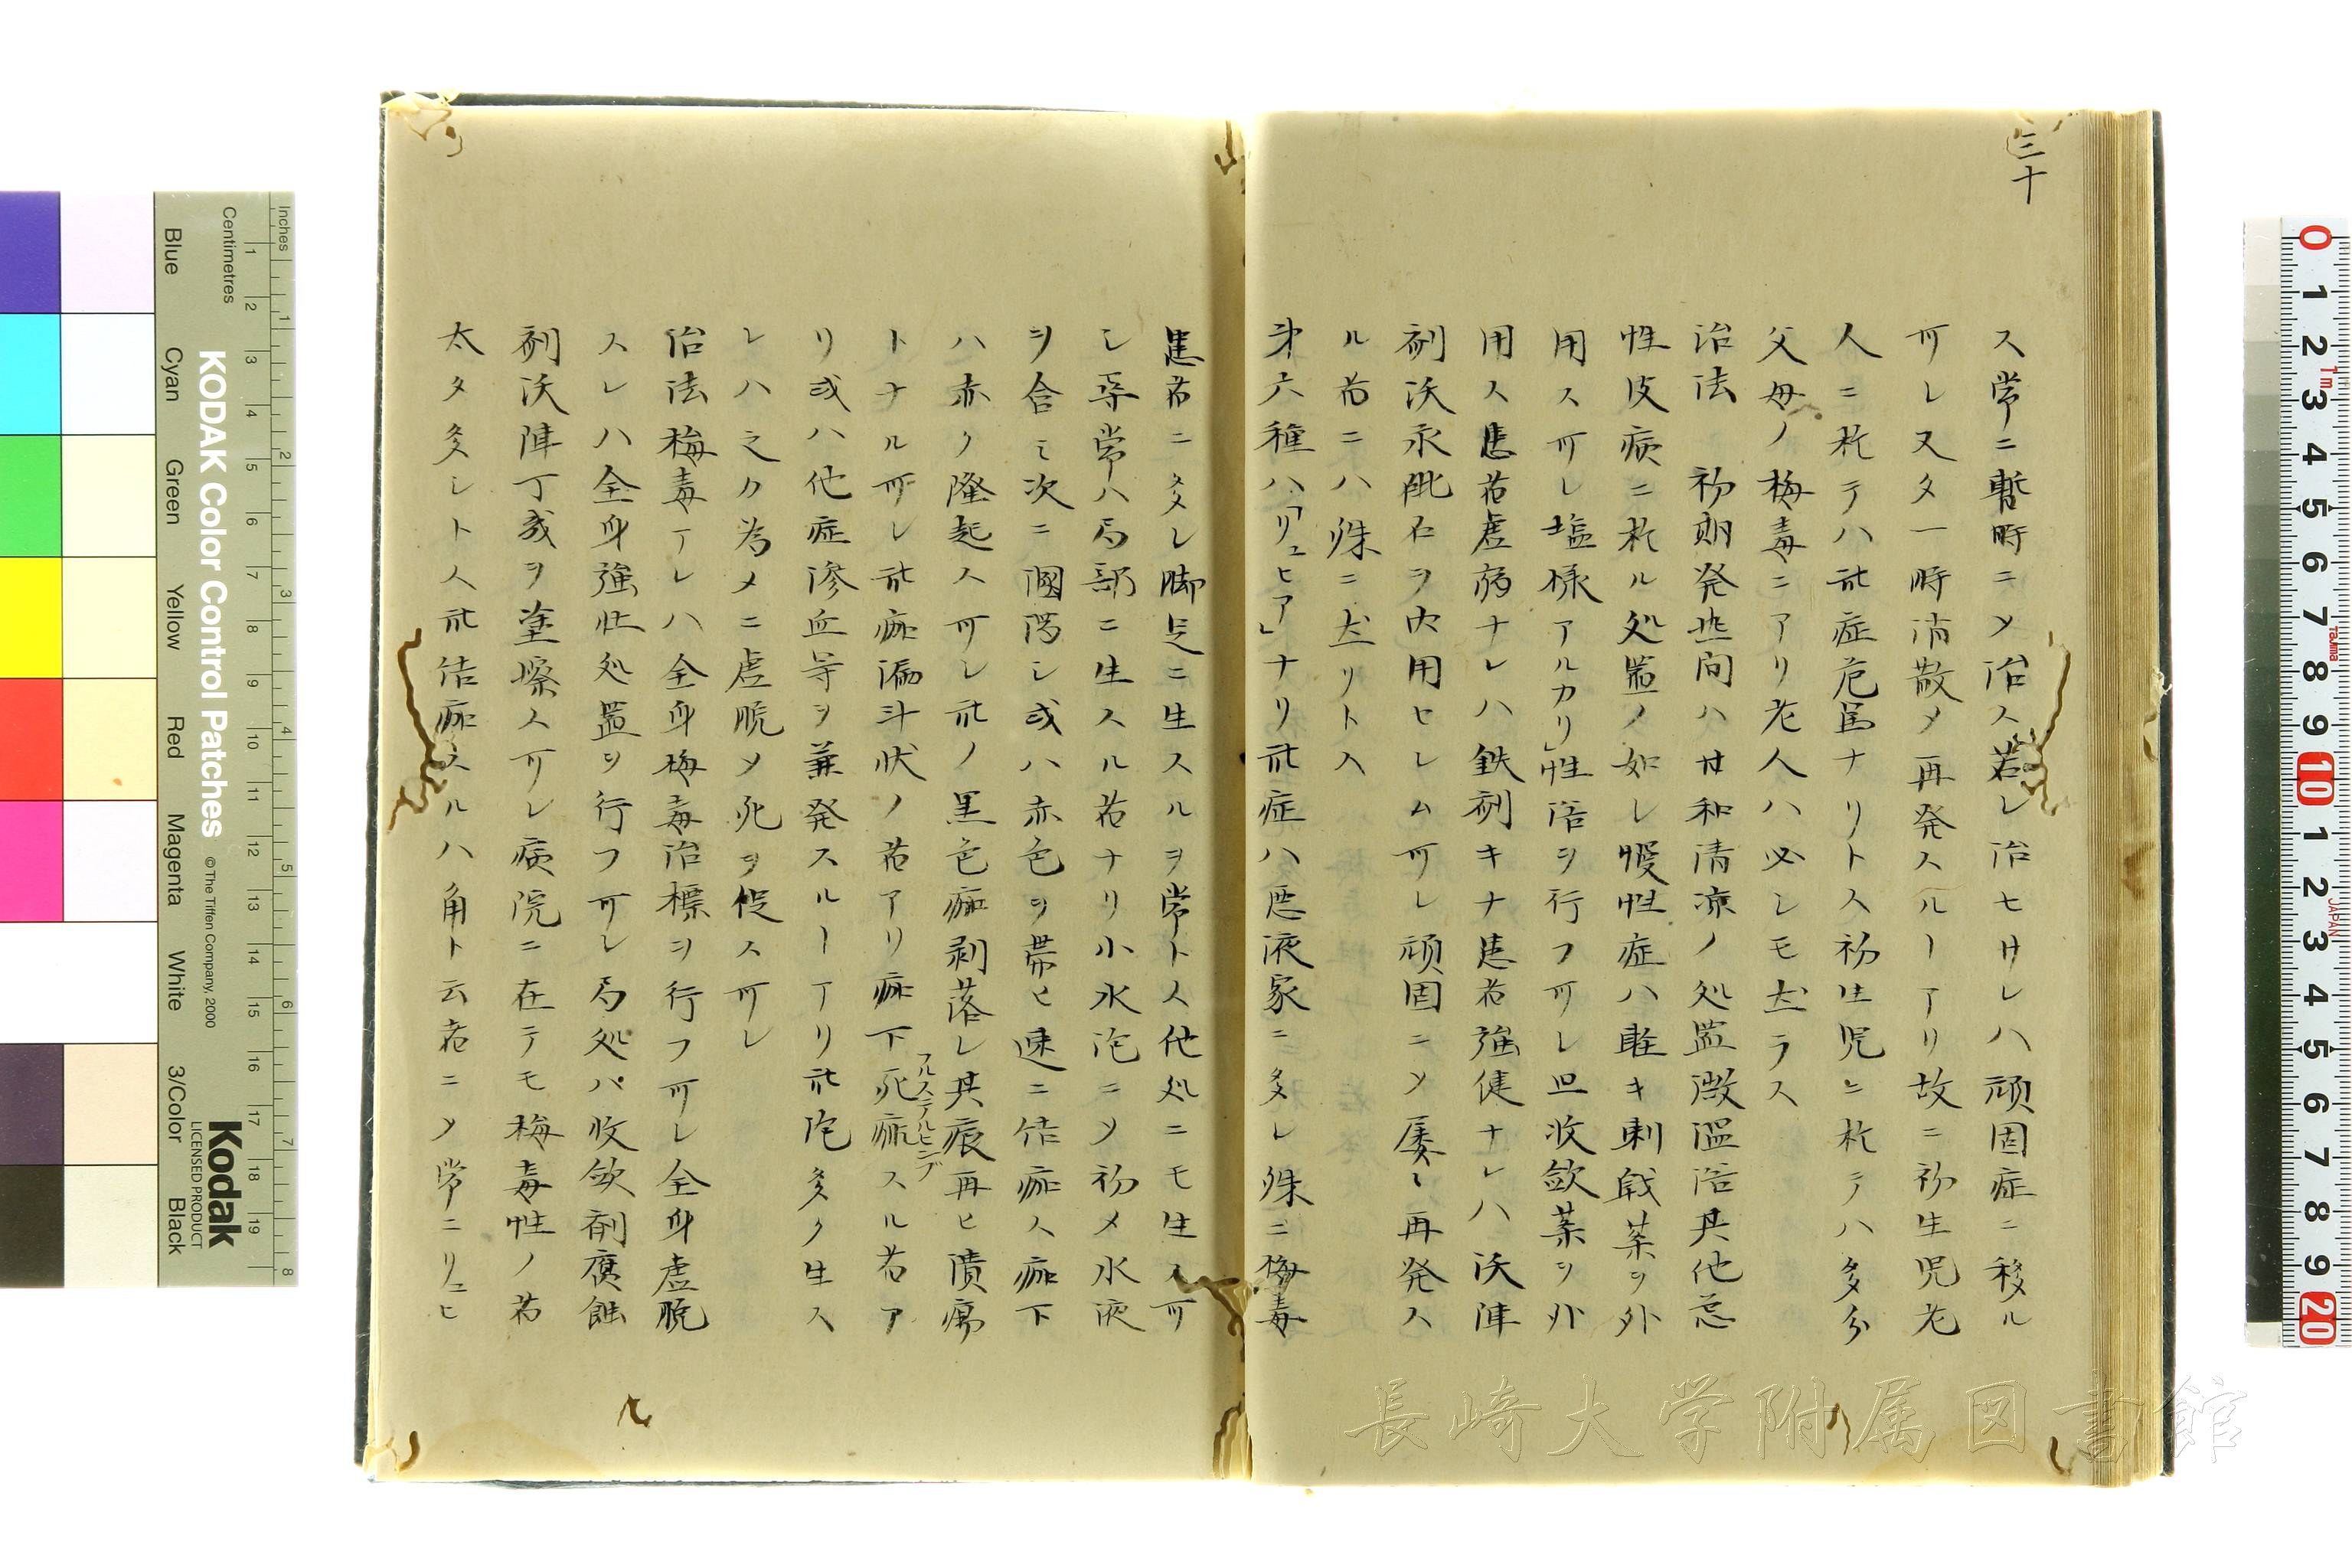 三十
ス常ニ暫時ニメ治ス若シ治セサレハ頑固症ニ移ル
可シ又タ一時消散メ再発スルヿアリ故ニ初生児老
人ニ於テハ此症危篤ナリトス初生児ニ於テハ多分
父母ノ梅毒ニアリ老人ハ必シモ然ラス
治法 初期発熱間ハ甘和清凉ノ処置微温浴其他急
性皮病ニ於ル処置ノ如シ慢性症ハ軽キ刺戟薬ヲ外
用ス可シ塩様アルカリ」性浴ヲ行フ可シ且收歛薬ヲ外
用ス患者虚弱ナレハ鉄剤キナ患者強健ナレハ沃陣
剤沃永砒石ヲ内用セシム可シ頑固ニメ屡〻再発ス
ル者ニハ殊ニ然リトス
第六種ハ「リュヒア」ナリ此症ハ悪液家ニ多シ殊ニ梅毒
患者ニ多シ脚足ニ生スルヲ常トス他処ニモ生ス可
シ尋常ハ局部ニ生スル者ナリ小水泡ニメ初メ水液
ヲ含ミ次ニ溷濁シ或ハ赤色ヲ帯ヒ速ニ結痂ス痂下
ハ赤ク隆起ス可シ此ノ黒色痂剥落シ其痕再ヒ潰瘍
トナル可シ此痂漏斗状ノ者アリ痂下死痂スル者ア
フルステルヒング
リ或ハ他症滲血等ヲ兼発スルヿアリ此疱多ク生ス
レハ之カ為メニ虚脱メ死ヲ促ス可シ
治法梅毒アレハ全身梅毒治標ヲ行フ可シ全身虚脱
スレハ全身強壮処置ヲ行フ可シ局処ハ收歛剤腐蝕
剤沃陣丁幾ヲ塗擦ス可シ病院ニ在テモ梅毒性ノ者
太タ多シトス此結痂スルハ角ト云者ニメ常ニリュヒ
KODAK Color Control Patches
©The Tiffen Company, 2000
Kodak
LICENSED PRODUCT
Inches
Centimetres
Blue
Cyan
Green
Yellow
Red
Magenta
White
3/Color
Black
長崎大学附属図書館